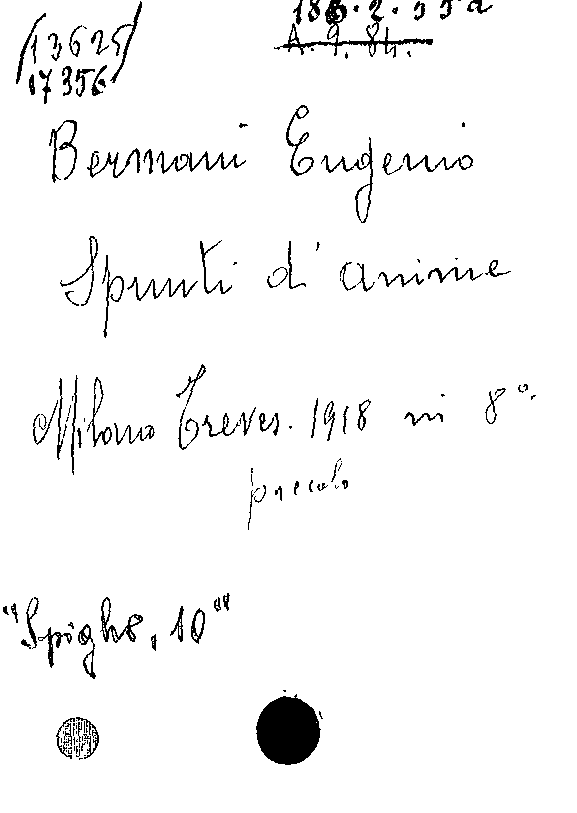 13625
17356
A. 9. 84.
Bermani Eugenio
Spunti d'anime
Milano Treves. 1918 in 8º.
piccolo
"Spighe, 10"